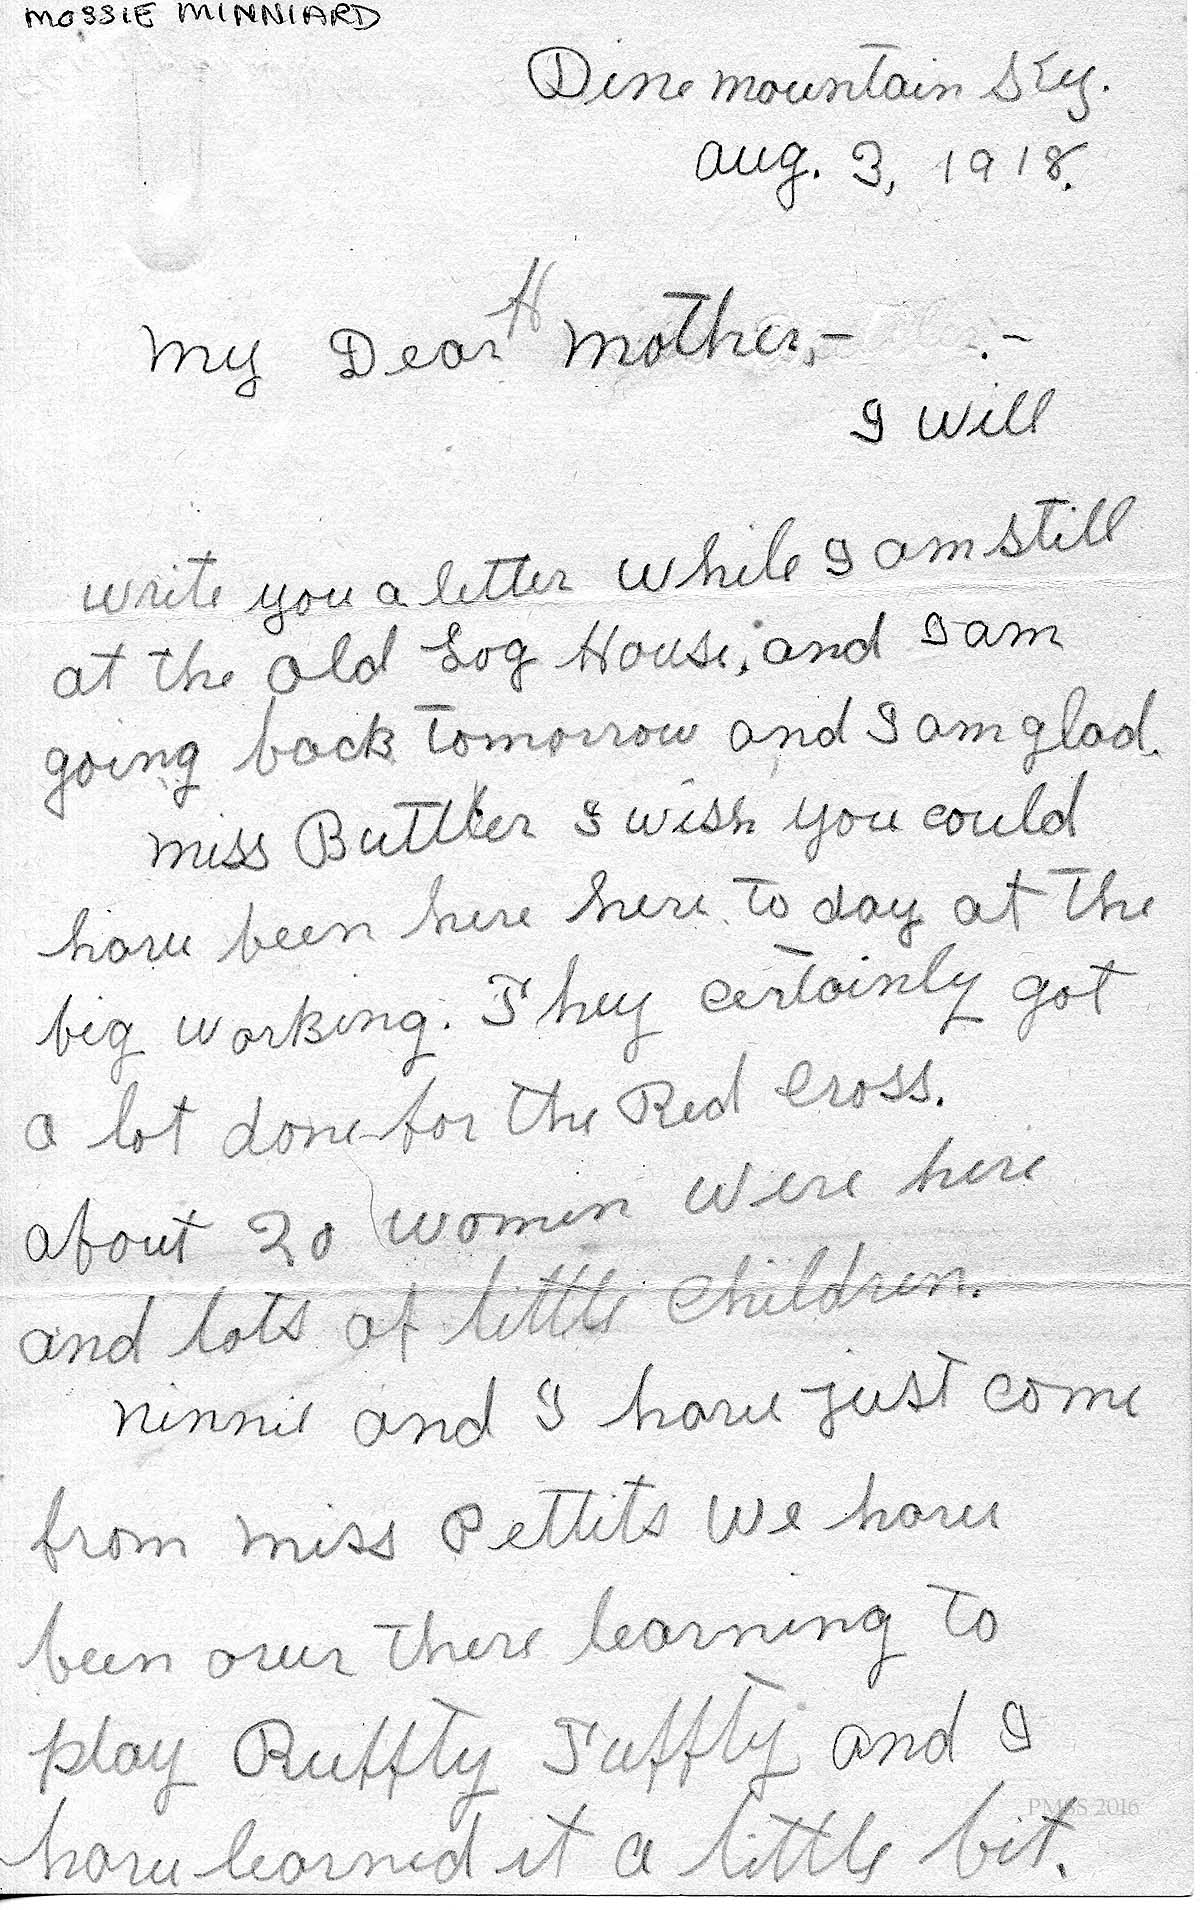 MOSSIE MINNIARD
Pine mountain Ky.
aug. 3, 1918.
H
My Dear mother,- .-
I will
write you a letter while I am still
at the old Log House, and I am
going back tomorrow and I am glad.
miss Buttler I wish you could
have been here here to day at the
big working. They certainly got
a lot done for the Red Cross.
about 20 women were here
and lots of little children.
ninnie and I have just come
from miss Pettits we have
been over there learning to
play Ruffty Tuffty and I
have learned it a little bit.
PMSS 2016